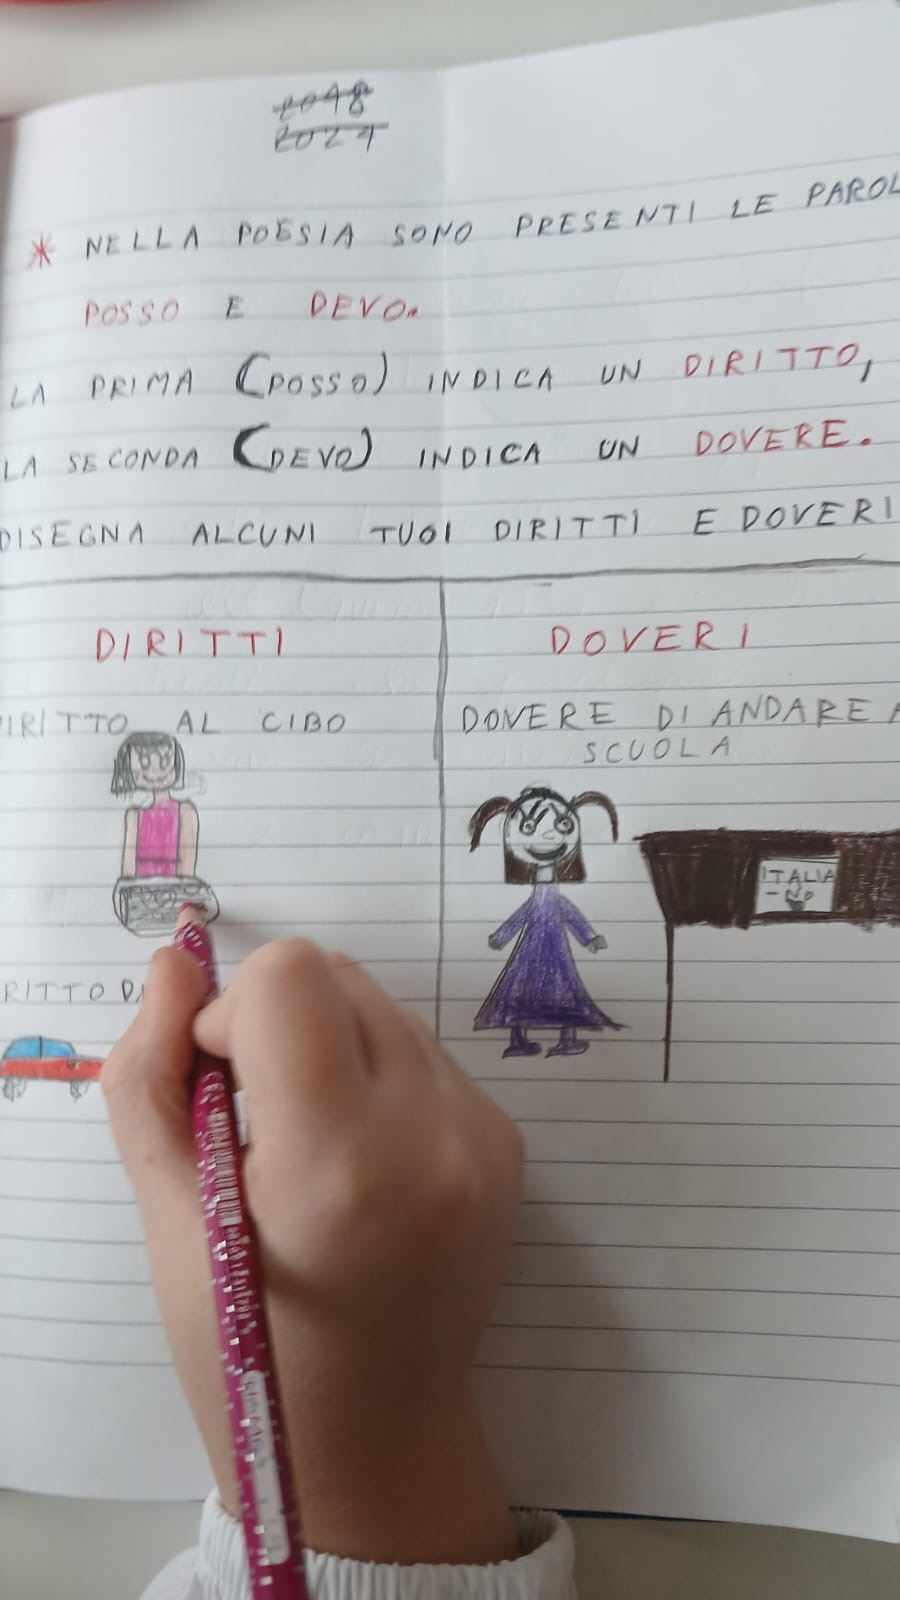 2048
2024
* NELLA POESIA SONO PRESENTI LE PAROL
POSSO E DEVO.
LA PRIMA (POSSO) INDICA UN DIRITTO,
LA SECONDA (DEVO) INDICA UN DOVERE.
DISEGNA ALCUNI TUOI DIRITTI E DOVERI
DIRITTI
DOVERI
DIRITTO AL CIBO
DOVERE DI ANDARE A
SCUOLA
ITALIA
NO
RITTO D